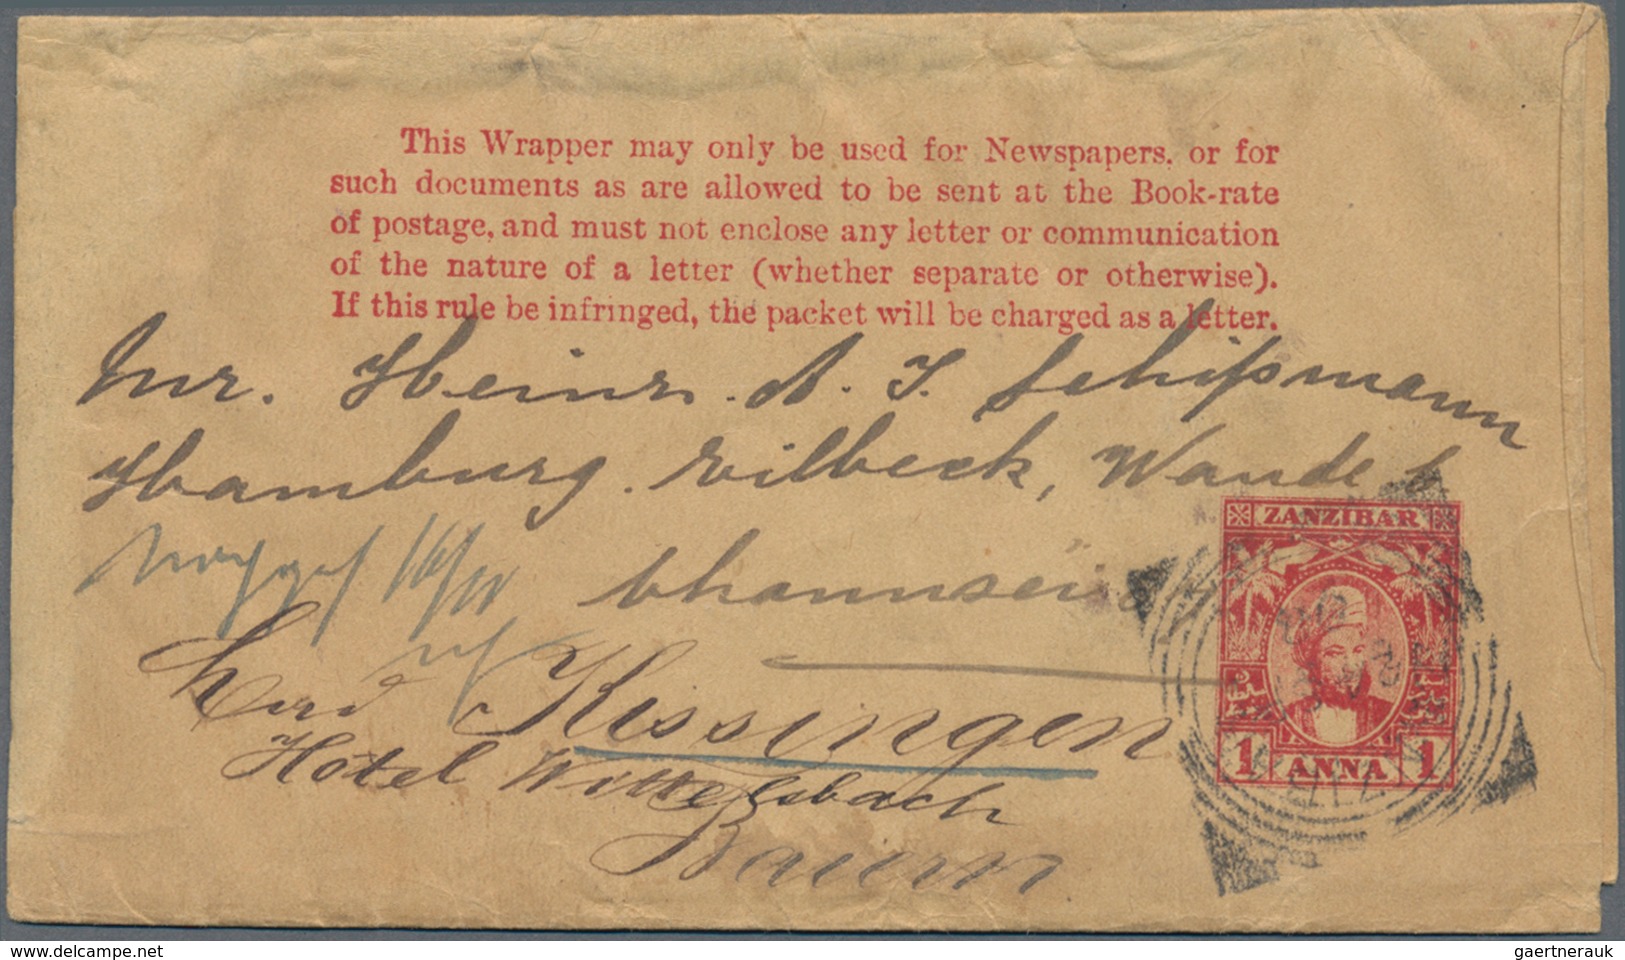 This Wrapper may only be used for Newspapers, or for
such documents as are allowed to be sent at the Book-rate
of postage, and must not enclose any letter or communication
of the nature of a letter (whether separate or otherwise).
If this rule be infringed, the packet will be charged as a letter.
Mr. Heinr. A. T. Schißmann
Hamburg. Eilbeck, Wandsb
chaussee
ZANZIBAR
Bad Kissingen
Hôtel Wittelsbach
Bayern
1 ANNA 1
www.delcampe.net
gaertnerauk